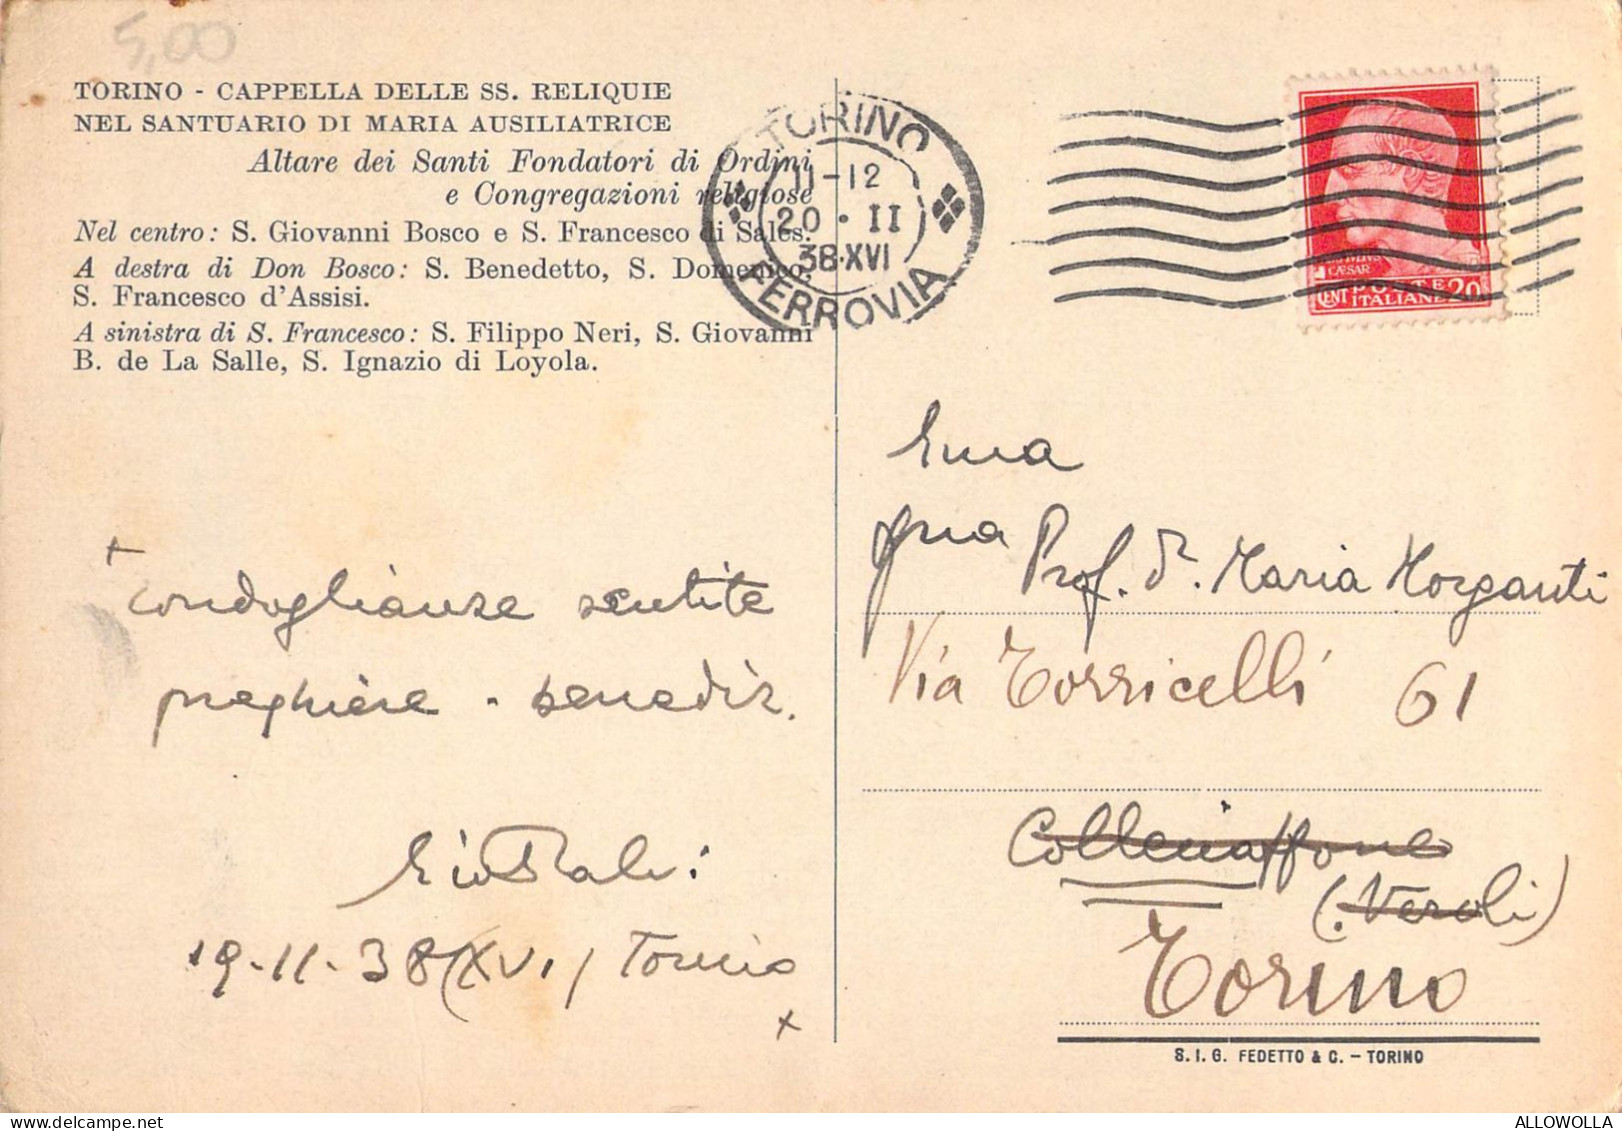 5,00
TORINO - CAPPELLA DELLE SS. RELIQUIE
NEL SANTUARIO DI MARIA AUSILIATRICE
Altare dei Santi Fondatori di Ordini
e Congregazioni religiose
Nel centro: S. Giovanni Bosco e S. Francesco di Sales.
A destra di Don Bosco: S. Benedetto, S. Domenico,
S. Francesco d'Assisi.
A sinistra di S. Francesco: S. Filippo Neri, S. Giovanni
B. de La Salle, S. Ignazio di Loyola.
+
condoglianze sentite
preghiere - benediz.
19-II-38 (XVI) Torino
+
TORINO
11-12
20·II
38·XVI
FERROVIA
CAESAR
CENT POSTE 20
ITALIANE
Prof. D. Maria Morganti
Via Torricelli 61
(Veroli)
Torino
S. I. G. FEDETTO & C. - TORINO
ALLOWOLLA